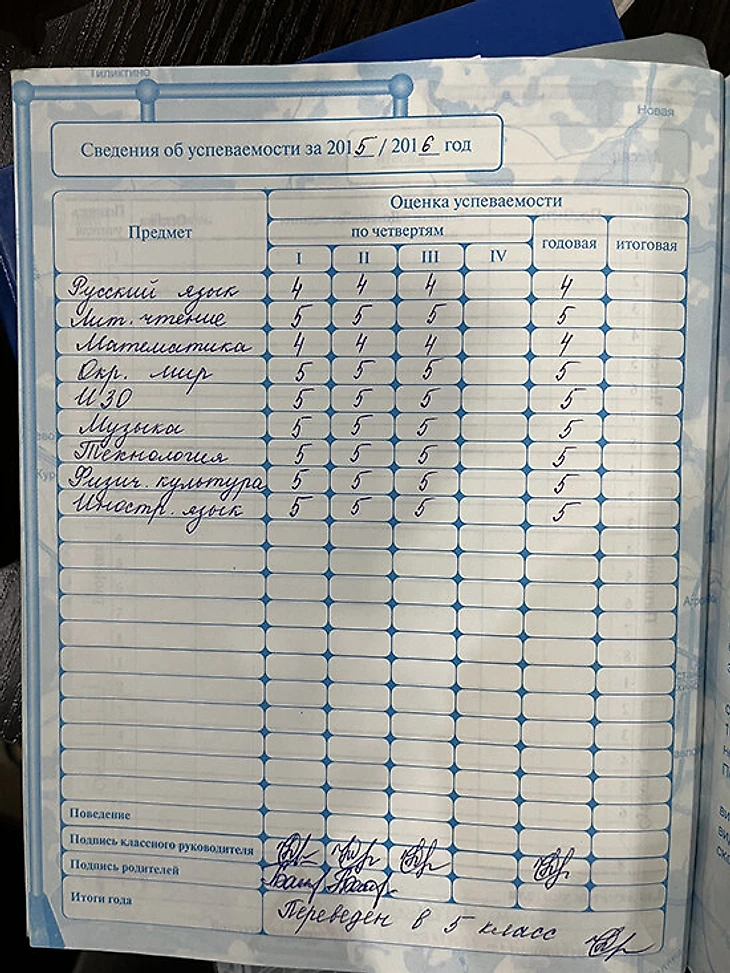 Гиликтино
Новая
Сведения об успеваемости за 2015 / 2016 год
Предмет
Оценка успеваемости
по четвертям
годовая
итоговая
I II III IV
Русский язык 4 4 4 4
Лит. чтение 5 5 5 5
Математика 4 4 4 4
Окр. мир 5 5 5 5
ИЗО 5 5 5 5
Музыка 5 5 5 5
Технология 5 5 5 5
Физич. культура 5 5 5 5
Иностр. язык 5 5 5 5
Поведение
Подпись классного руководителя
Подпись родителей
Итоги года Переведен в 5 класс